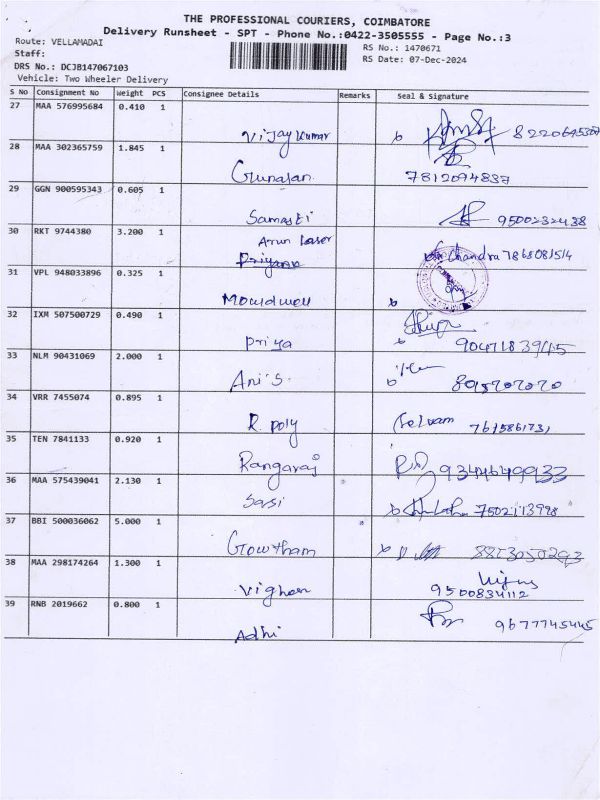 THE PROFESSIONAL COURIERS, COIMBATORE
Delivery Runsheet - SPT - Phone No.:0422-3505555 - Page No.:3
Route: VELLAMADAI
RS No.: 1470671
Staff:
RS Date: 07-Dec-2024
DRS No.: DCJB147067103
Vehicle: Two Wheeler Delivery
S No Consignment No Weight PCS Consignee Details Remarks Seal & Signature
27 MAA 576995684 0.410 1
Vijay Kumar
28 MAA 302365759 1.845 1
Gunasan 7812094837
29 GGN 900595343 0.605 1
Samasti 9500232438
30 RKT 9744380 3.200 1
Arun Laser
Priyanka Chandra 7868081514
31 VPL 948033896 0.325 1
Mouldwell
32 IXM 507500729 0.490 1
Priya 9047183945
33 NLM 90431069 2.000 1
Ani's.
34 VRR 7455074 0.895 1
R. poly Selvam 7615861731
35 TEN 7841133 0.920 1
Rangaraj 9344649933
36 MAA 575439041 2.130 1
Sasi 7502113998
37 BBI 500036062 5.000 1
Gowtham 8823050293
38 MAA 298174264 1.300 1
Vighen 9500834112
39 RNB 2019662 0.800 1
Adhi 9677745445